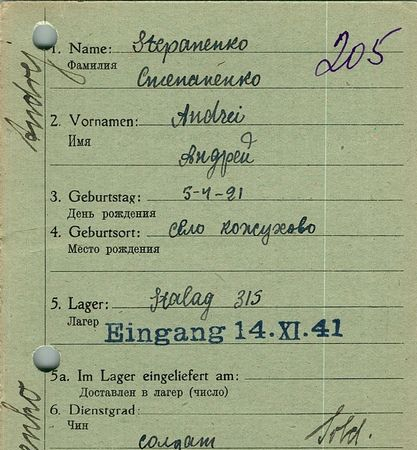 205
1. Name: Stepanenko
Фамилия
Степаненко
2. Vornamen: Andrei
Имя
Андрей
3. Geburtstag: 5-4-21
День рождения
4. Geburtsort: село кожухово
Место рождения
5. Lager: Stalag 315
Лагерь
Eingang 14.XI.41
5a. Im Lager eingeliefert am:
Доставлен в лагерь (число)
6. Dienstgrad: Sold.
Чин
солдат
Andrej
enko